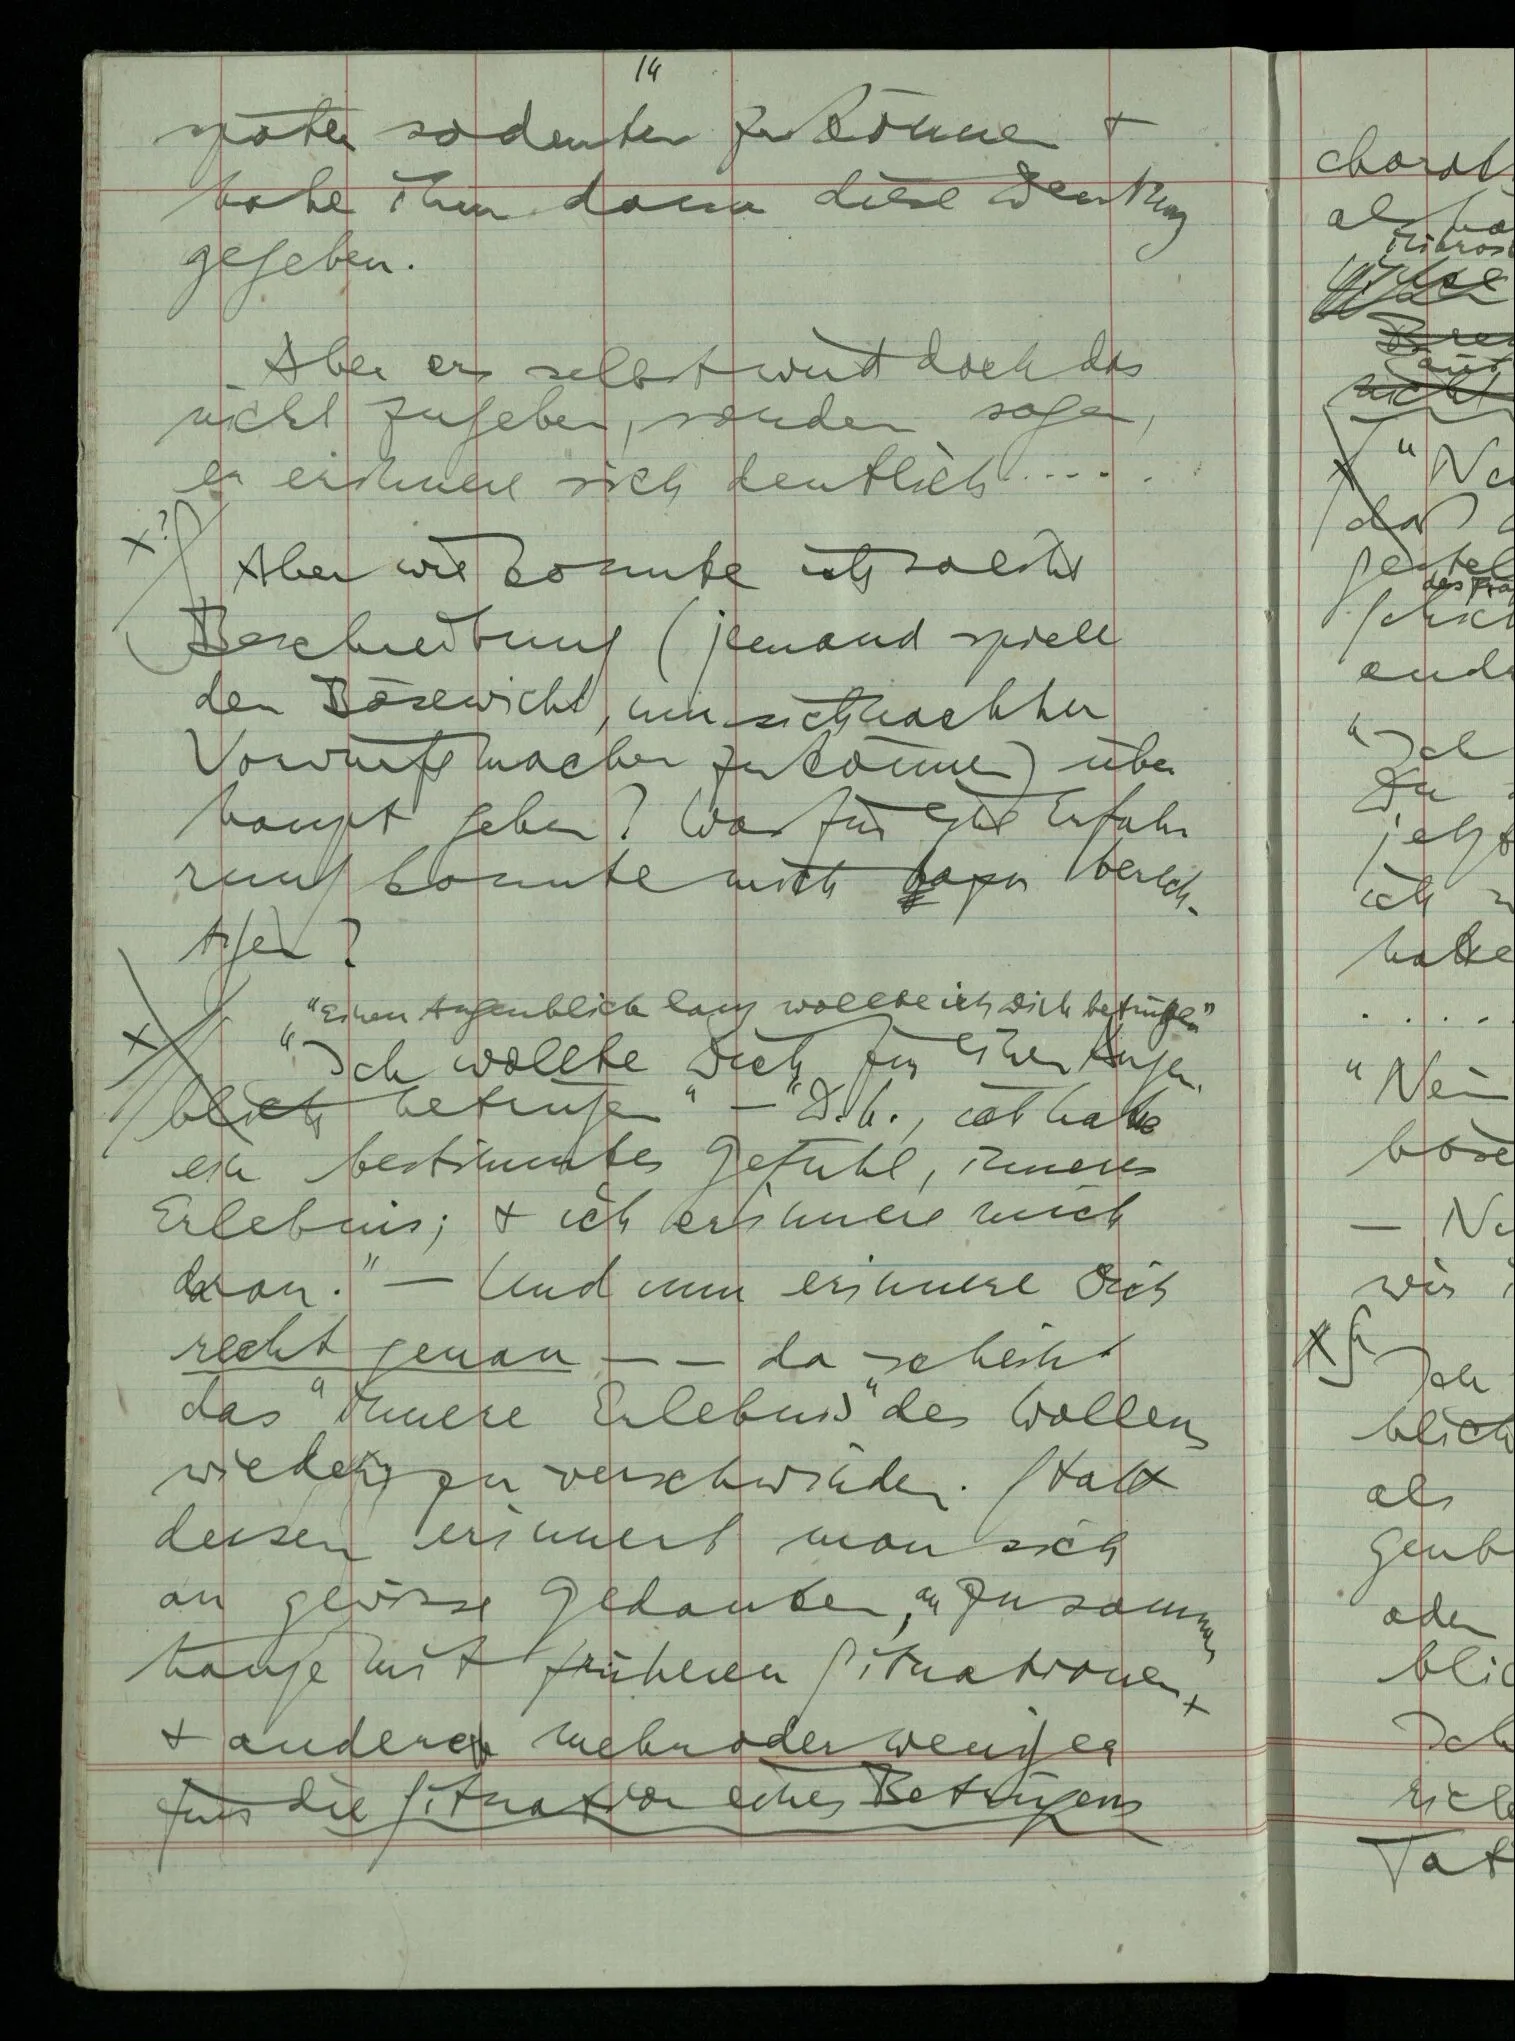 14
später so deuten zu können +
habe ihm dann diese Wendung
gegeben.
Aber er selbst wird doch das
nicht zugeben, sondern sagen,
er erinnere sich deutlich.....
x?
Aber wie konnte ich solche
Beschreibung (jemand spiele
den Bösewicht, um sich nachher
Vorwürfe machen zu können) über
haupt geben? Was für eine Erfah
rung konnte mich dazu berech-
tigen?
"Einen Augenblick lang wollte ich Dich betrügen"
x
"Ich wollte Dich für einen Augen-
blick betrügen" – "D.h., ich hatte
ein bestimmtes Gefühl, inneres
Erlebnis; + ich erinnere mich
daran." – Und nun erinnere Dich
recht genau – – da scheint
das "innere Erlebnis" des Wollens
wieder zu verschwinden. Statt
dessen erinnert man sich
an gewisse Gedanken, an Zusammen
hänge mit früheren Situationen +
+ andere mehr oder weniger
für die Situation eines Betrügens
charakt
als
"
das
"Ich
Du
jetzt
ich
hatte
.....
"Nein
böse
–
wir
x
Ich
blick
als
oder
Ich
Tat